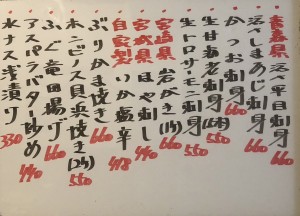 青森県 活〆平目刺身 660
活〆しまあじ刺身 660
かつお刺身 660
生甘海老刺身(5本) 550
生トロサーモン刺身 550
宮崎県 岩がき(1ヶ) 660
宮城県 ほや刺し 440
自家製 いか塩辛 418
ぶりかま焼き 660
ホンビノス貝浜焼き(2ヶ) 550
ふぐ竜田揚げ 660
アスパラバター炒め 440
水ナス浅漬け 330